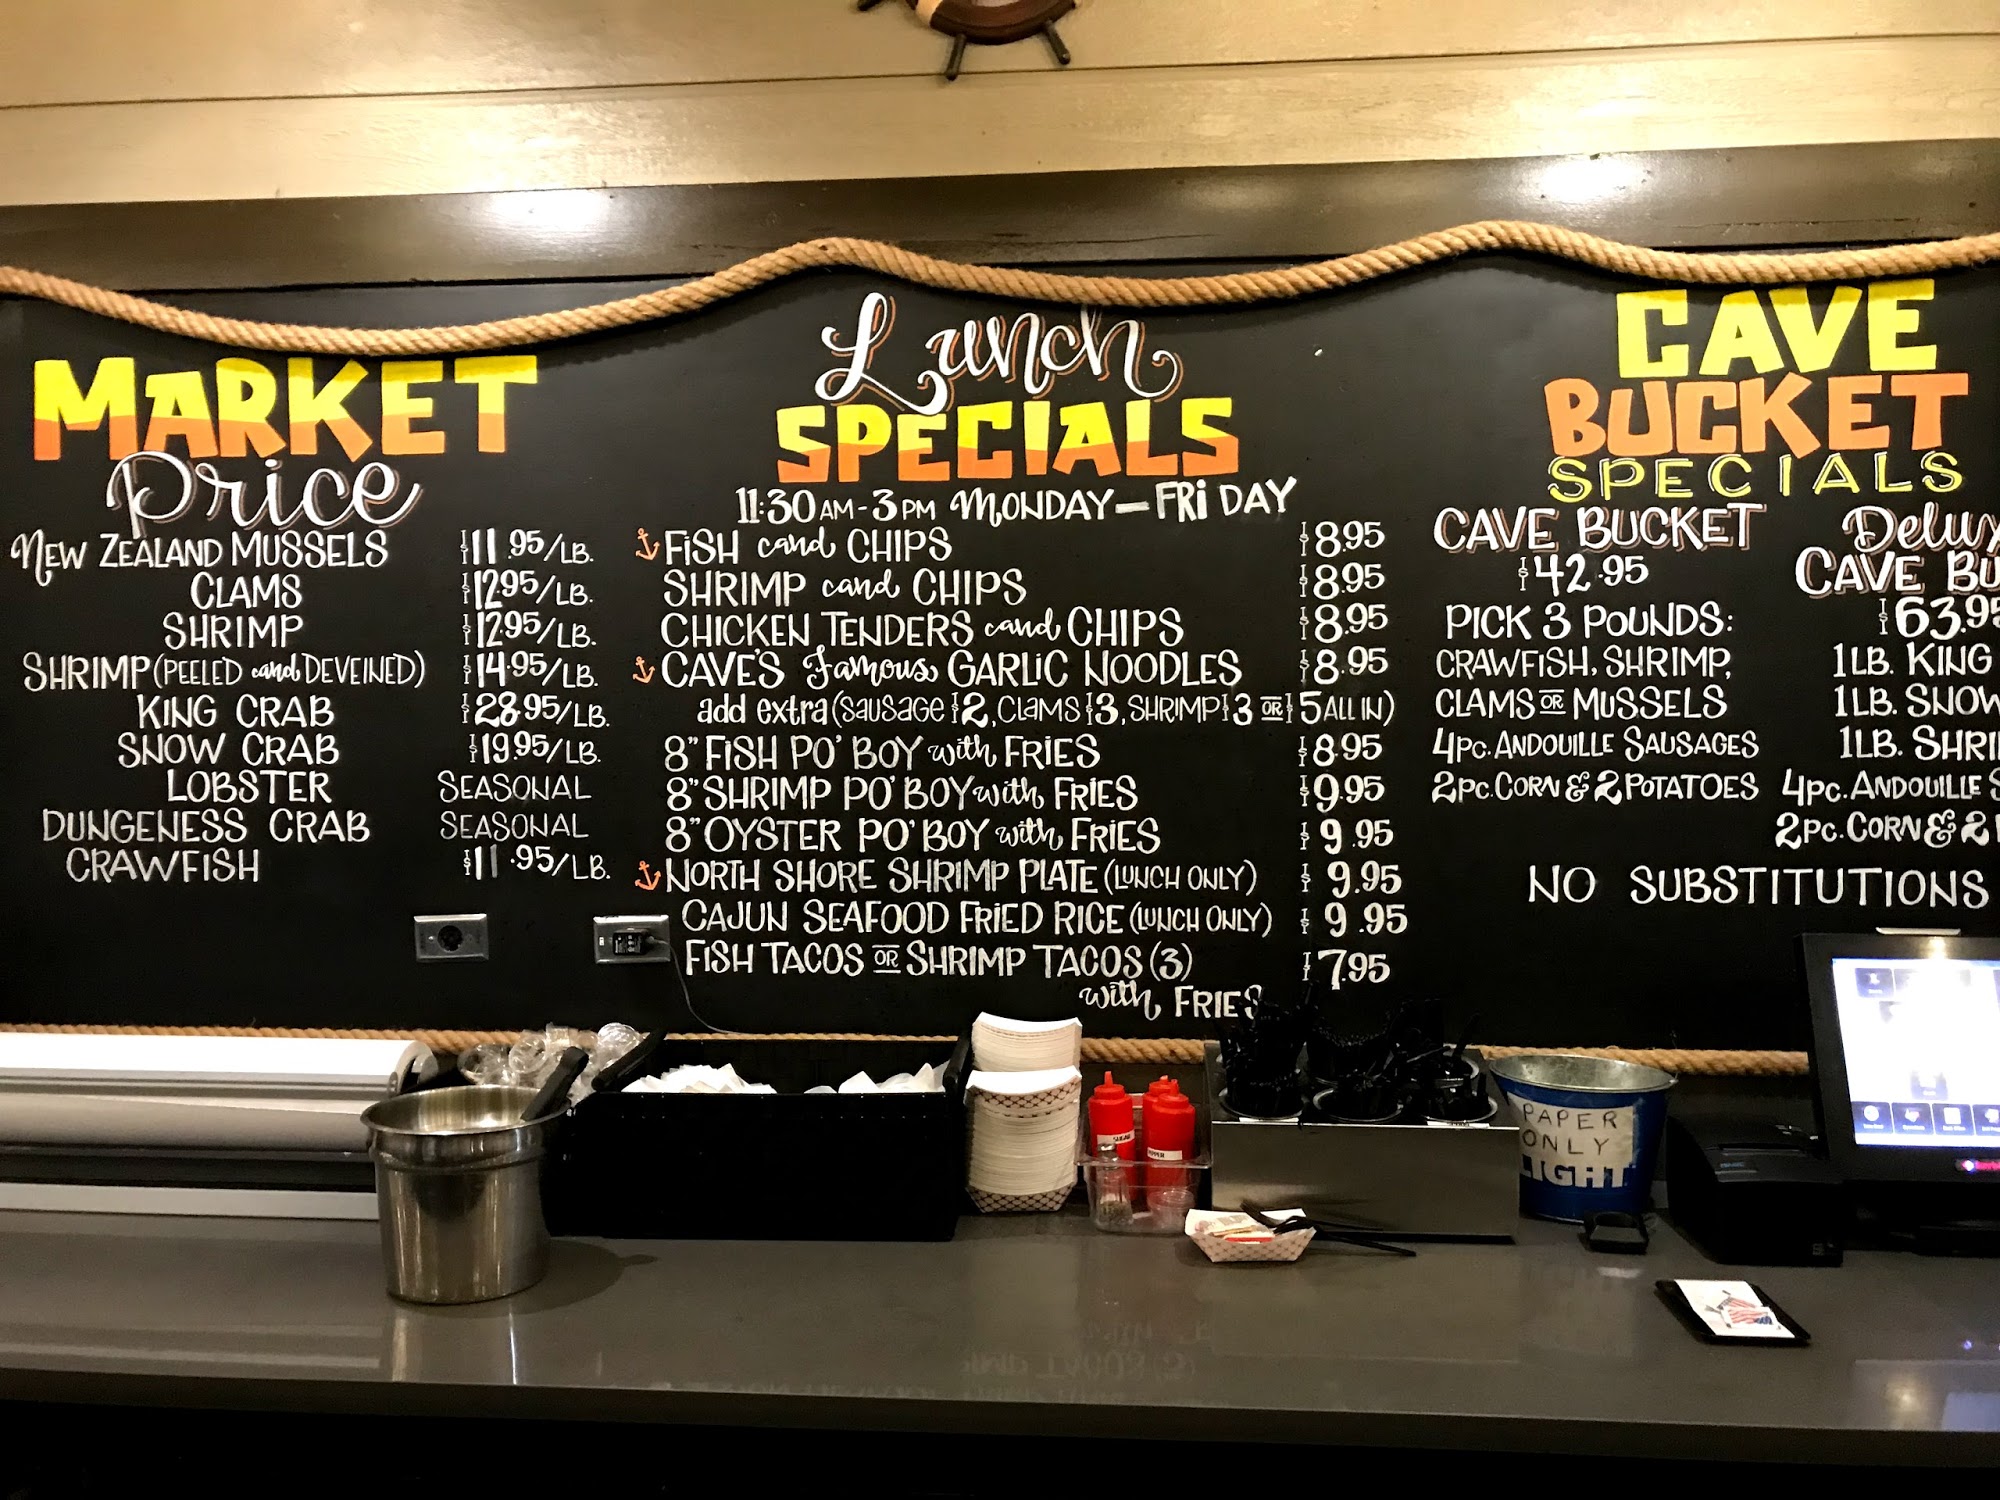 MARKET
Price
NEW ZEALAND MUSSELS $11.95/LB.
CLAMS $12.95/LB.
SHRIMP $12.95/LB.
SHRIMP (PEELED and DEVEINED) $14.95/LB.
KING CRAB $28.95/LB.
SNOW CRAB $19.95/LB.
LOBSTER SEASONAL
DUNGENESS CRAB SEASONAL
CRAWFISH $11.95/LB.
Lunch
SPECIALS
11:30 AM - 3 PM MONDAY - FRIDAY
FISH and CHIPS $8.95
SHRIMP and CHIPS $8.95
CHICKEN TENDERS and CHIPS $8.95
CAVE'S Famous GARLIC NOODLES $8.95
add extra (SAUSAGE $2, CLAMS $3, SHRIMP $3 OR $5 ALL IN)
8" FISH PO' BOY with FRIES $8.95
8" SHRIMP PO' BOY with FRIES $9.95
8" OYSTER PO' BOY with FRIES $9.95
NORTH SHORE SHRIMP PLATE (LUNCH ONLY) $9.95
CAJUN SEAFOOD FRIED RICE (LUNCH ONLY) $9.95
FISH TACOS OR SHRIMP TACOS (3) $7.95
with FRIES
CAVE
BUCKET
SPECIALS
CAVE BUCKET
$42.95
PICK 3 POUNDS:
CRAWFISH, SHRIMP,
CLAMS OR MUSSELS
4PC. ANDOUILLE SAUSAGES
2PC. CORN & 2 POTATOES
Delux
CAVE BU
$63.95
1 LB. KING
1 LB. SNOW
1 LB. SHRI
4PC. ANDOUILLE S
2PC. CORN & 2
NO SUBSTITUTIONS
PAPER
ONLY
LIGHT